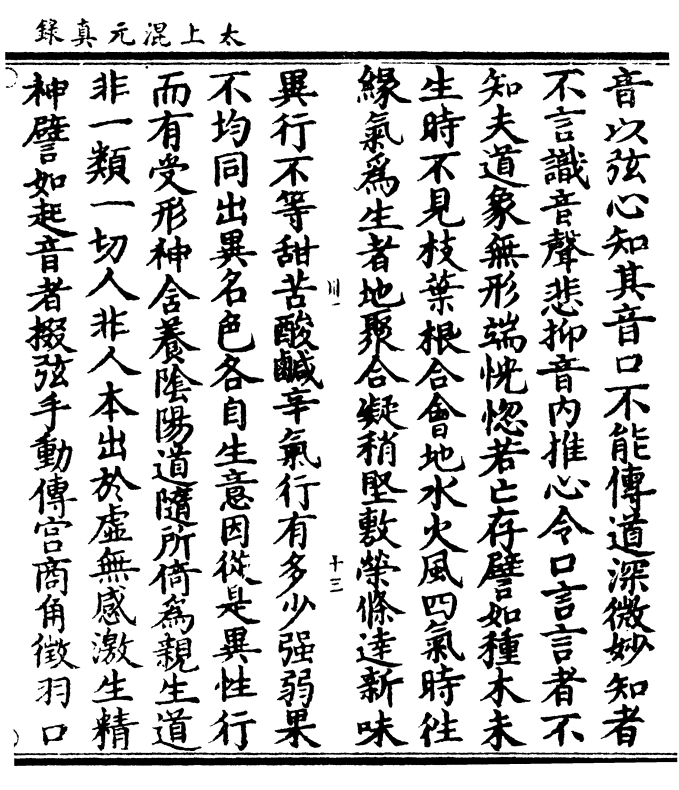 太上混元真録
音以弦心知其音口不能傳道深微妙知者
不言識音聲悲抑音内推心令口言言者不
知夫道象無形端恍惚若亡存譬如種木未
生時不見枝葉根合會地水火風四氣時往
緣氣爲生者地聚合凝稍堅敷榮條達新味
川一
十三
異行不等甜苦酸鹹辛氣行有多少强弱果
不均同出異名色各自生意因從是異性行
而有受形神含養陰陽道隨所倚爲親生道
非一類一切人非人本出於虛無感激生精
神譬如起音者掇弦手動傳宫商角徵羽口